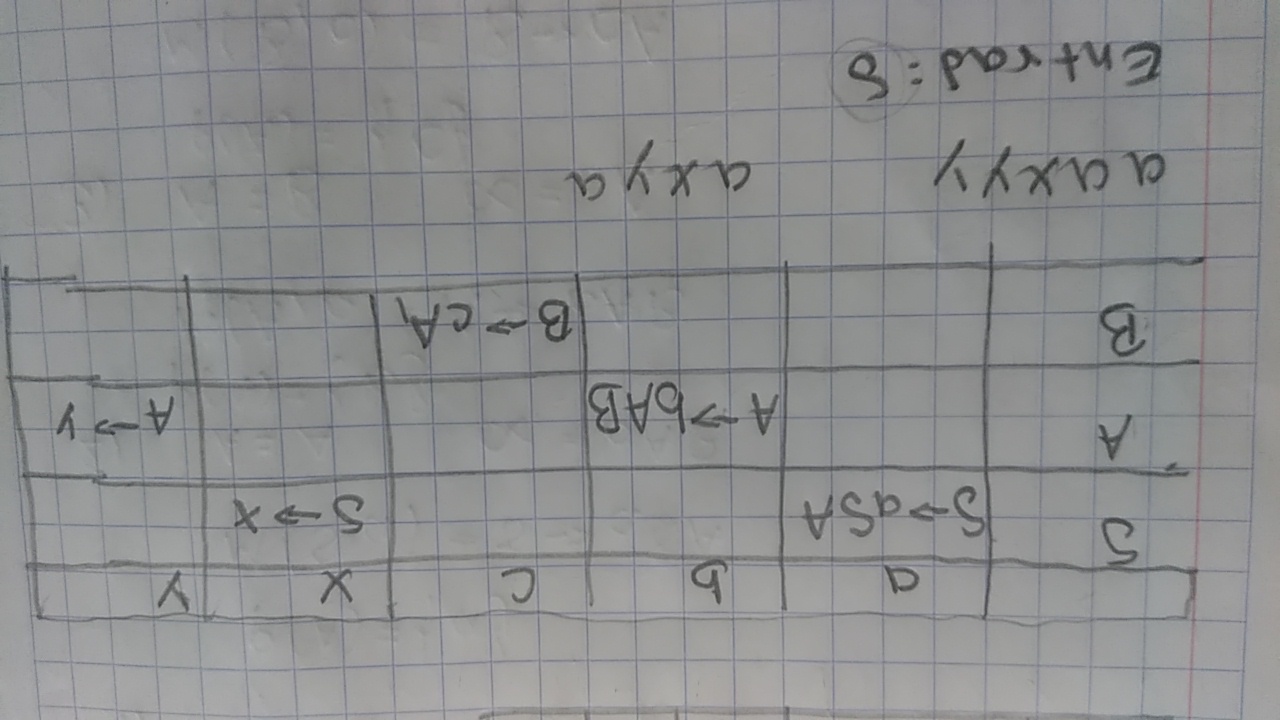 a b c x y
S S→aSA S→x
A A→bAB A→y
B B→cA
aaxyy axya
Entrad: S